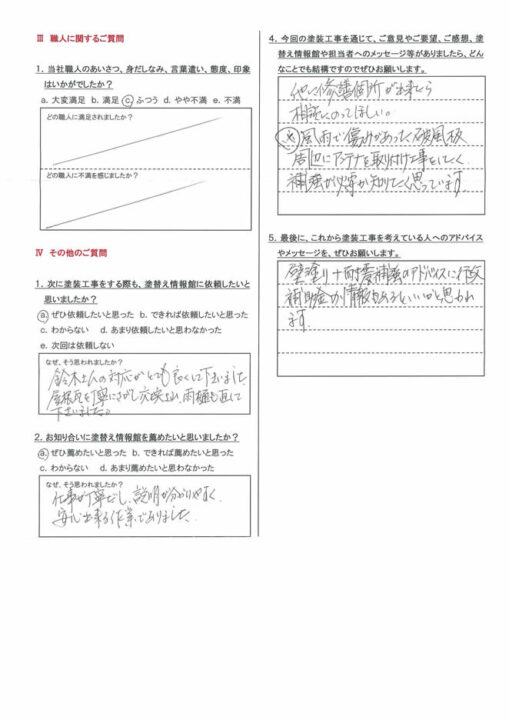 Ⅲ 職人に関するご質問
1. 当社職人のあいさつ、身だしなみ、言葉遣い、態度、印象
はいかがでしたか？
a. 大変満足 b. 満足 c. ふつう d. やや不満 e. 不満
どの職人に満足されましたか？
どの職人に不満を感じましたか？
Ⅳ その他のご質問
1. 次に塗装工事をする際も、塗替え情報館に依頼したいと
思いましたか？
a. ぜひ依頼したいと思った b. できれば依頼したいと思った
c. わからない d. あまり依頼したいと思わなかった
e. 次回は依頼しない
なぜ、そう思われましたか？
鈴木さんの対応がとても良くして下さいました
屋根瓦を丁寧にさがし交換され、雨樋も直して
下さいました。
2. お知り合いに塗替え情報館を薦めたいと思いましたか？
a. ぜひ薦めたいと思った b. できれば薦めたいと思った
c. わからない d. あまり薦めたいと思わなかった
なぜ、そう思われましたか？
仕事が丁寧だし、説明が分かりやすく、
安心出来る作業でありました。
4. 今回の塗装工事を通じて、ご意見やご要望、ご感想、塗
替え情報館や担当者へのメッセージ等がありましたら、どん
なことでも結構ですのでぜひお願いします。
他に修護個所が出来たら
相談にのってほしい。
風雨で傷みがあったく破風板
周辺にアンテナを取り付け工事をしてく、
補強が必要か知りたく思っています。
5. 最後に、これから塗装工事を考えている人へのアドバイス
やメッセージを、ぜひお願いします。
壁塗り+耐震補強のアドバイスに行政
補助金が情報
と思われ
ます.